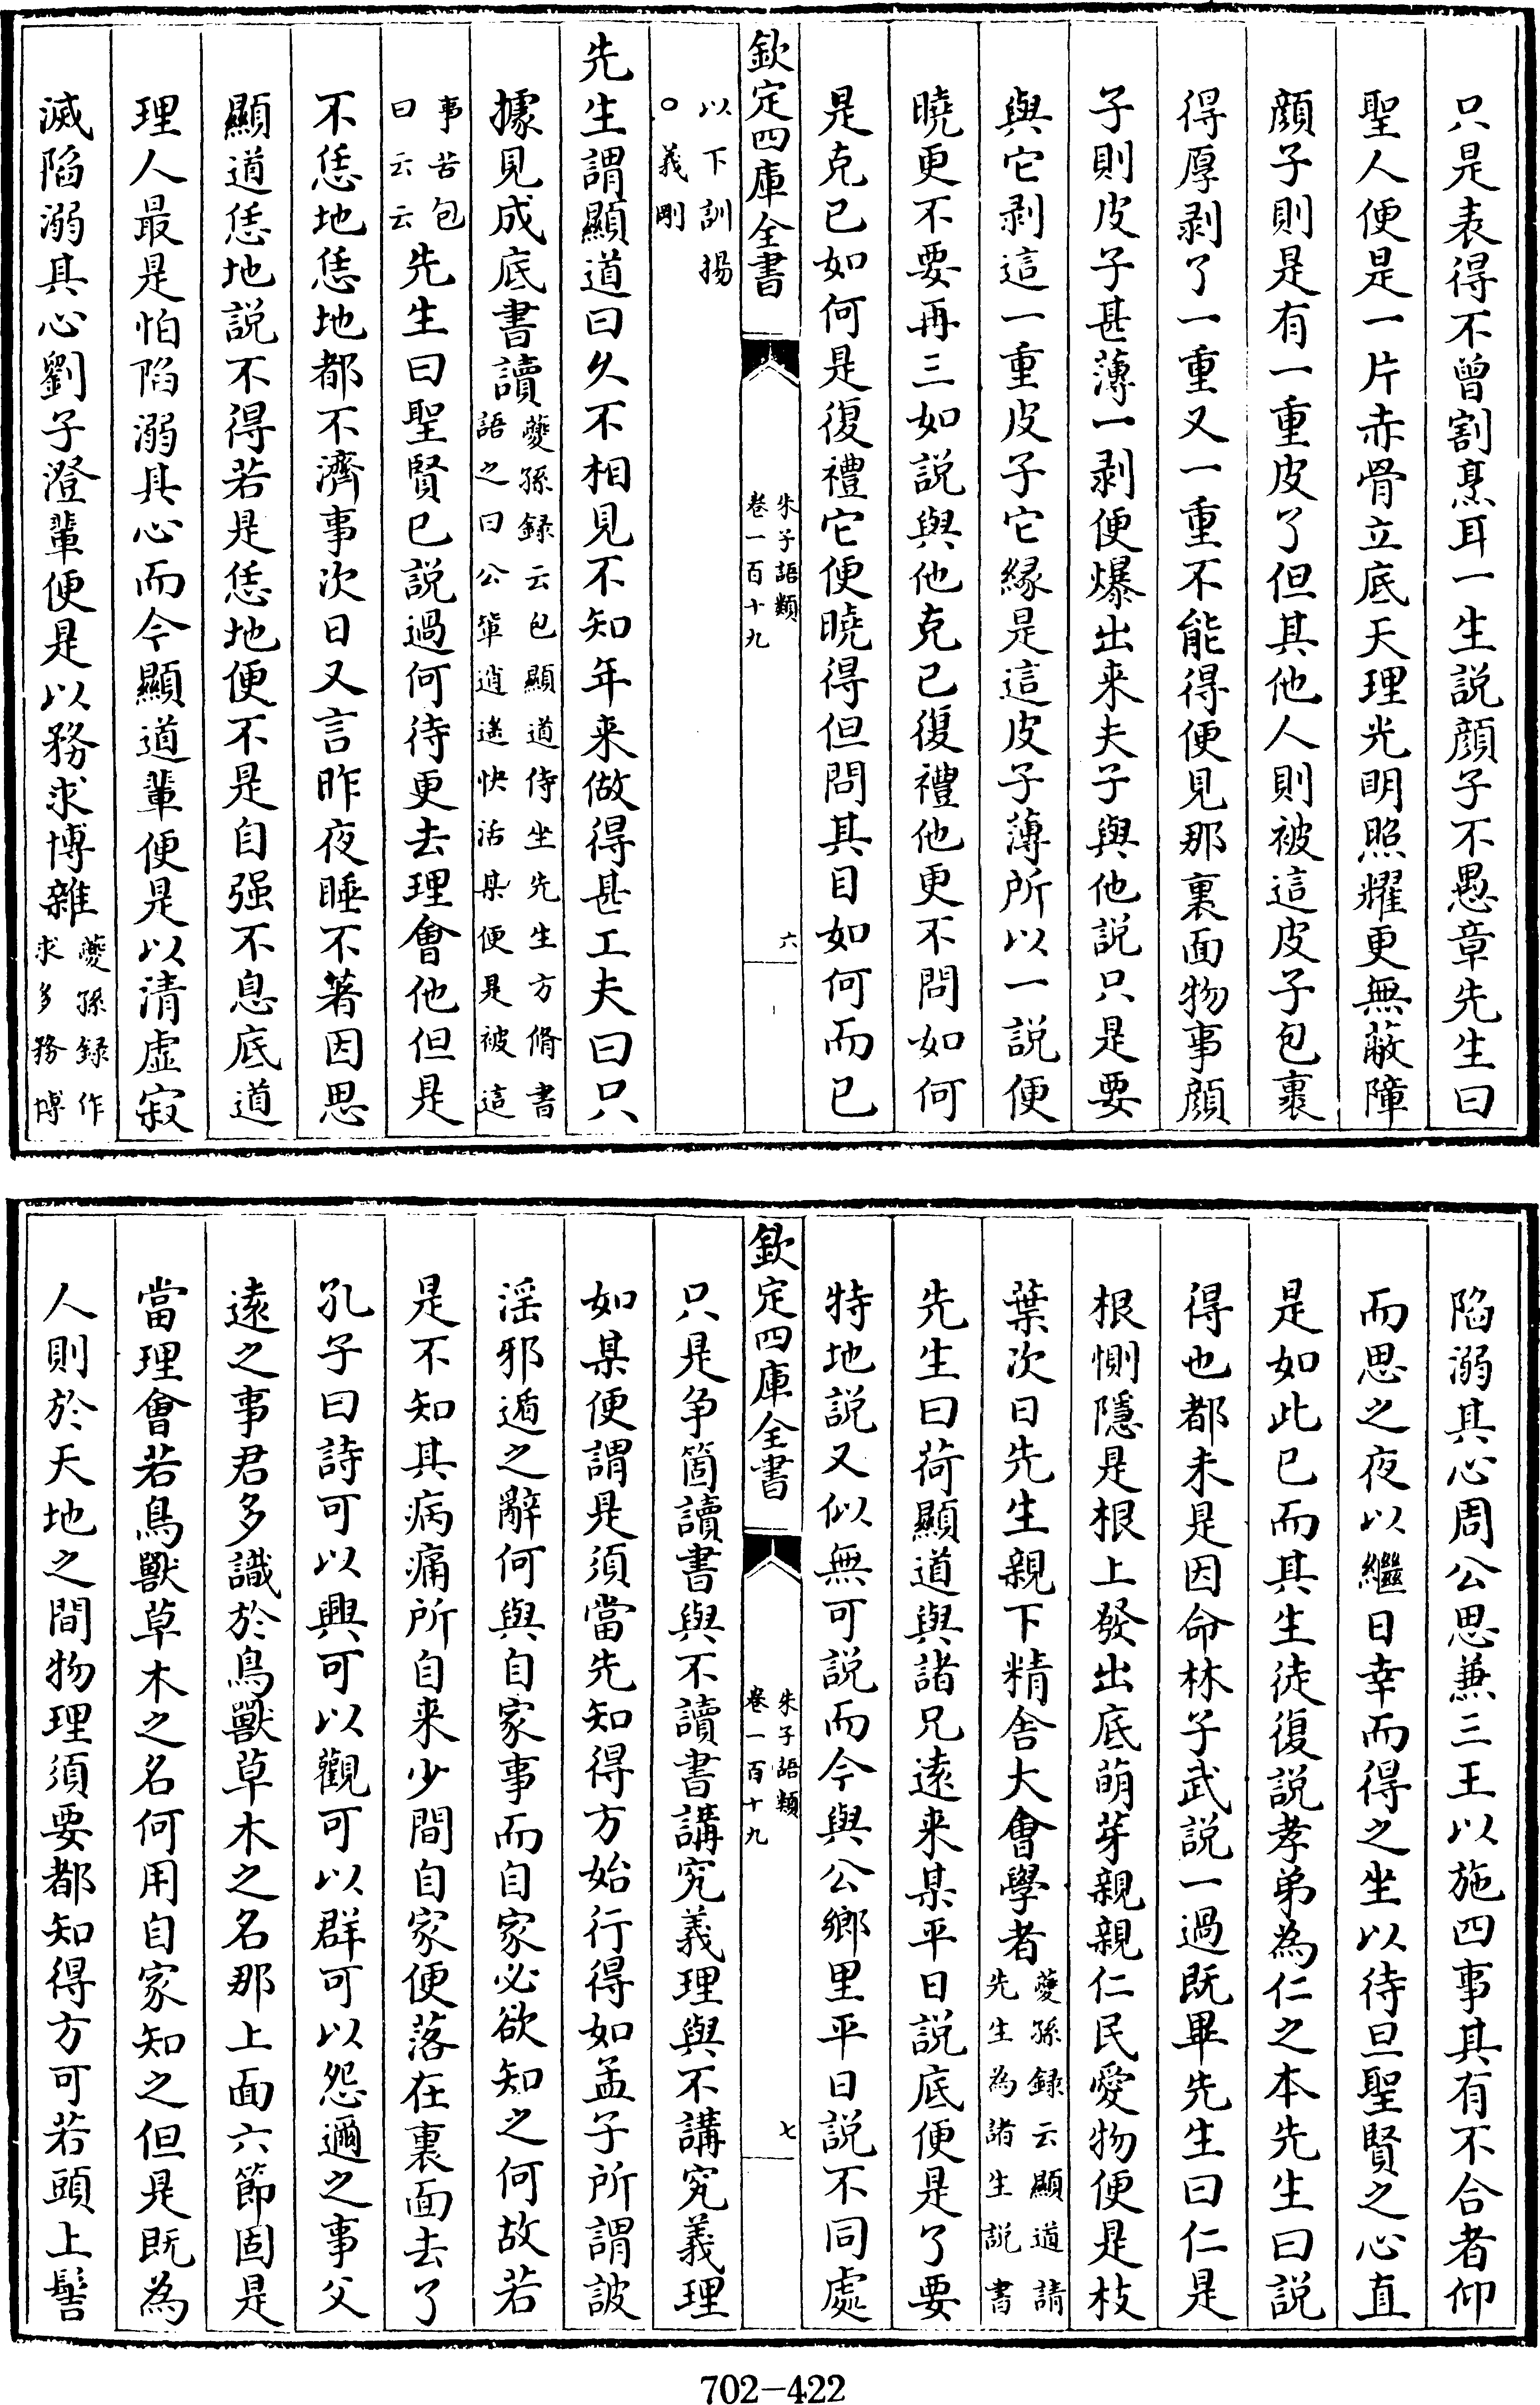 只是表得不曾割烹耳一生説顔子不愚章先生曰
聖人便是一片赤骨立底天理光明照耀更無蔽障
顔子則是有一重皮了但其他人則被這皮子包裹
得厚剥了一重又一重不能得便見那裏面物事顔
子則皮子甚薄一剥便爆出来夫子與他説只是要
與它剥這一重皮子它縁是這皮子薄所以一説便
曉更不要再三如説與他克己復禮他更不問如何
是克己如何是復禮它便曉得但問其目如何而已
欽定四庫全書
朱子語類
卷一百十九
六
以下訓揚
○義剛
先生謂顯道曰久不相見不知年来做得甚工夫曰只
據見成底書讀
夔孫録云包顯道侍坐先生方脩書
語之曰公輩逍遙快活某便是被這
事苦包
曰云云
先生曰聖賢已説過何待更去理會他但是
不恁地恁地都不濟事次日又言昨夜睡不著因思
顯道恁地説不得若是恁地便不是自强不息底道
理人最是怕陷溺其心而今顯道輩便是以清虛寂
滅陷溺其心劉子澄輩便是以務求博雜
夔孫録作
求多務博
陷溺其心周公思兼三王以施四事其有不合者仰
而思之夜以繼日幸而得之坐以待旦聖賢之心直
是如此已而其生徒復説孝弟為仁之本先生曰説
得也都未是因命林子武説一過既畢先生曰仁是
根惻隱是根上發出底萌芽親親仁民愛物便是枝
葉次日先生親下精舍大會學者
夔孫録云顯道請
先生為諸生説書
先生曰荷顯道與諸兄逺来某平日説底便是了要
特地説又似無可説而今與公鄉里平日説不同處
欽定四庫全書
朱子語類
卷一百十九
七
只是争箇讀書與不讀書講究義理與不講究義理
如某便謂是須當先知得方始行得如孟子所謂詖
淫邪遁之辭何與自家事而自家必欲知之何故若
是不知其病痛所自来少間自家便落在裏面去了
孔子曰詩可以興可以觀可以群可以怨邇之事父
逺之事君多識於鳥獸草木之名那上面六節固是
當理會若鳥獸草木之名何用自家知之但是既為
人則於天地之間物理須要都知得方可若頭上髻
702-422